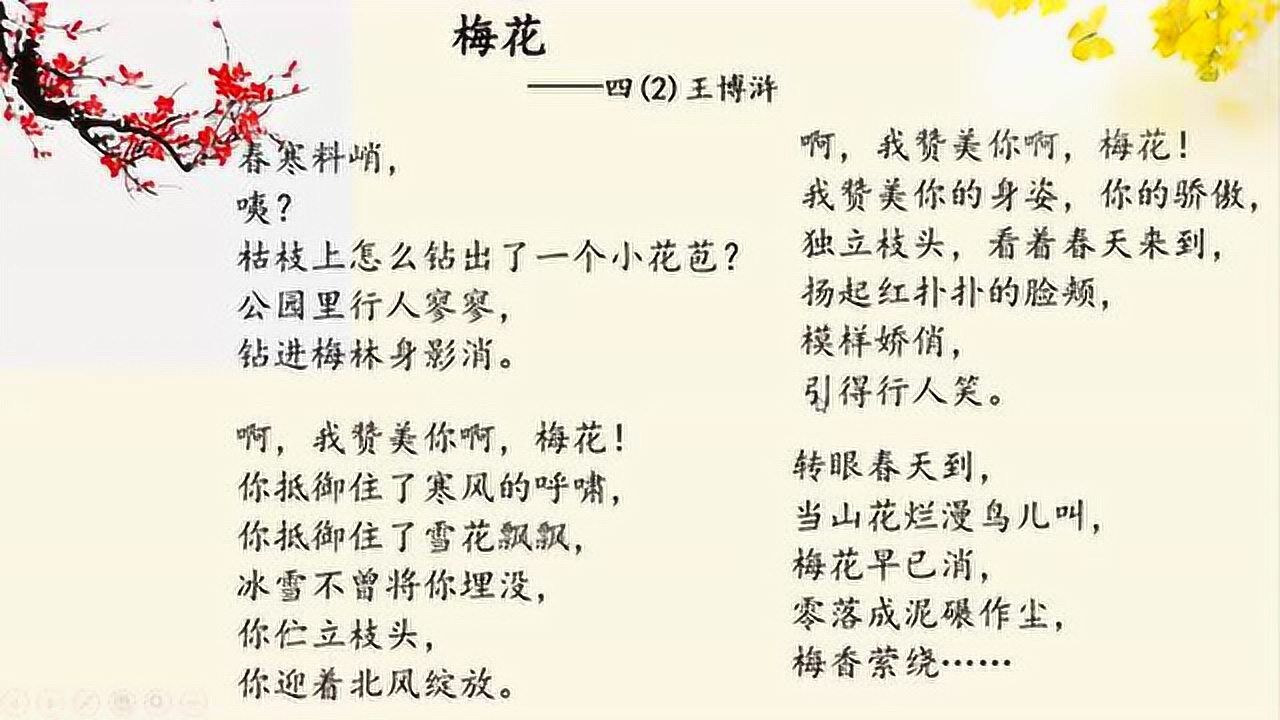 梅花
——四(2)王博浒
春寒料峭，
咦？
枯枝上怎么钻出了一个小花苞？
公园里行人寥寥，
钻进梅林身影消。
啊，我赞美你啊，梅花！
你抵御住了寒风的呼啸，
你抵御住了雪花飘飘，
冰雪不曾将你埋没，
你伫立枝头，
你迎着北风绽放。
啊，我赞美你啊，梅花！
我赞美你的身姿，你的骄傲，
独立枝头，看着春天来到，
扬起红扑扑的脸颊，
模样娇俏，
引得行人笑。
转眼春天到，
当山花烂漫鸟儿叫，
梅花早已消，
零落成泥碾作尘，
梅香萦绕……